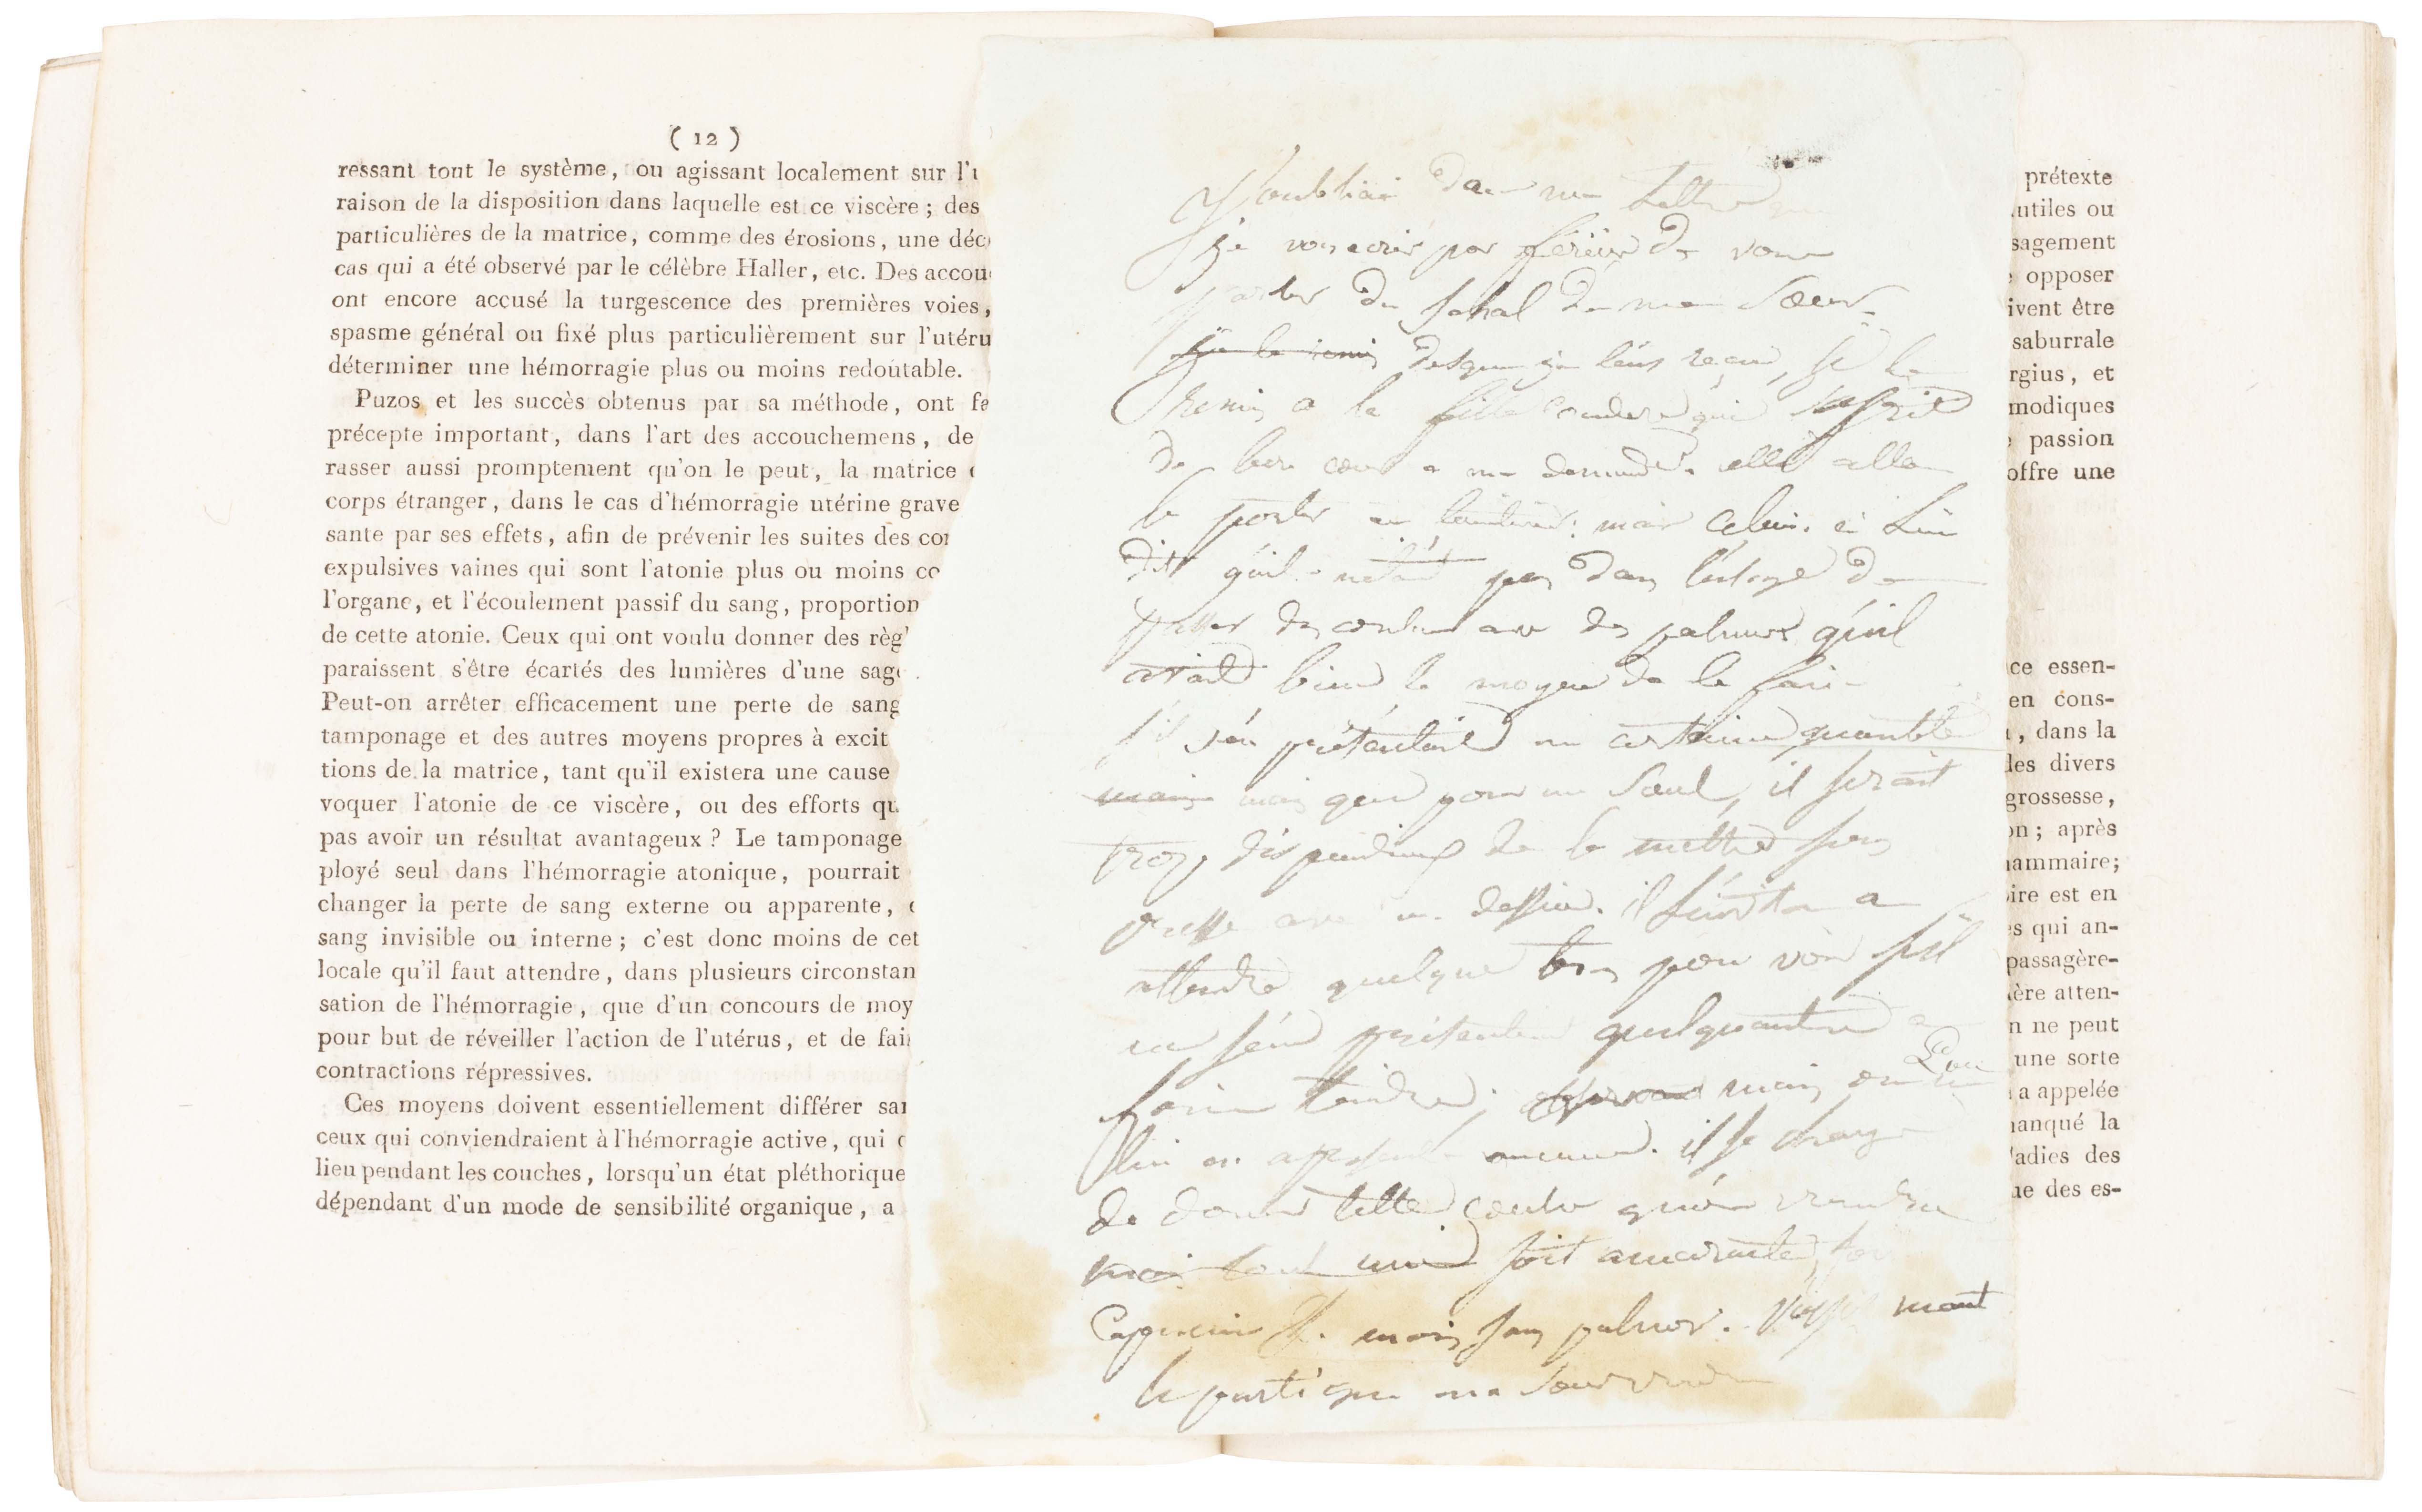 ( 12 )
ressant tout le système, ou agissant localement sur l'u
raison de la disposition dans laquelle est ce viscère ; des
particulières de la matrice, comme des érosions, une déc
cas qui a été observé par le célèbre Haller, etc. Des accou
ont encore accusé la turgescence des premières voies,
spasme général ou fixé plus particulièrement sur l'utéru
déterminer une hémorragie plus ou moins redoutable.
Puzos et les succès obtenus par sa méthode, ont fa
précepte important, dans l'art des accouchemens, de
rasser aussi promptement qu'on le peut, la matrice
corps étranger, dans le cas d'hémorragie utérine grave
sante par ses effets, afin de prévenir les suites des con
expulsives vaines qui sont l'atonie plus ou moins co
l'organe, et l'écoulement passif du sang, proportion
de cette atonie. Ceux qui ont voulu donner des règ
paraissent s'être écartés des lumières d'une sag
Peut-on arrêter efficacement une perte de sang
tamponage et des autres moyens propres à excit
tions de la matrice, tant qu'il existera une cause
voquer l'atonie de ce viscère, ou des efforts qu
pas avoir un résultat avantageux ? Le tamponage
ployé seul dans l'hémorragie atonique, pourrait
changer la perte de sang externe ou apparente,
sang invisible ou interne ; c'est donc moins de cet
locale qu'il faut attendre, dans plusieurs circonstan
sation de l'hémorragie, que d'un concours de moy
pour but de réveiller l'action de l'utérus, et de fai
contractions répressives.
Ces moyens doivent essentiellement différer san
ceux qui conviendraient à l'hémorragie active, qui
lieu pendant les couches, lorsqu'un état pléthorique
dépendant d'un mode de sensibilité organique, a
J'oubliai dan ma lettre
je vous écris par de vous
parler du schal de ma soeur
je le remis desque je l'eus reçu, je le
remis a la fille qui
de bon coeur a ma demande. elle alla
le porter au teinturier: mais celui-ci lui
dit qu'il n'etait pas dans l'usage de
des avec des palmes qu'il
avait bien le moyen de le faire
s'il s'en présentait une certaine quantité
mais mais que pour un seul, il serait
trop dispendieux de le mettre sous
presse avec un dessin. il a
attendre quelque tems pour voir s'il
s'en quelqu'autre a
faire teindre; mais on ne
lui en aucun. il se charge
de donner telle couleur qu'on voudra
mais tout uni soit amarante, soit
Capucin &. mais sans palmes. mant
le parti que ma soeur
prétexte
utiles ou
sagement
opposer
ivent être
saburrale
rgius, et
modiques
passion
offre une
ce essen-
en cons-
, dans la
des divers
grossesse,
on ; après
ammaire;
oire est en
es qui an-
passagère-
ière atten-
n ne peut
une sorte
a appelée
manqué la
adies des
ne des es-